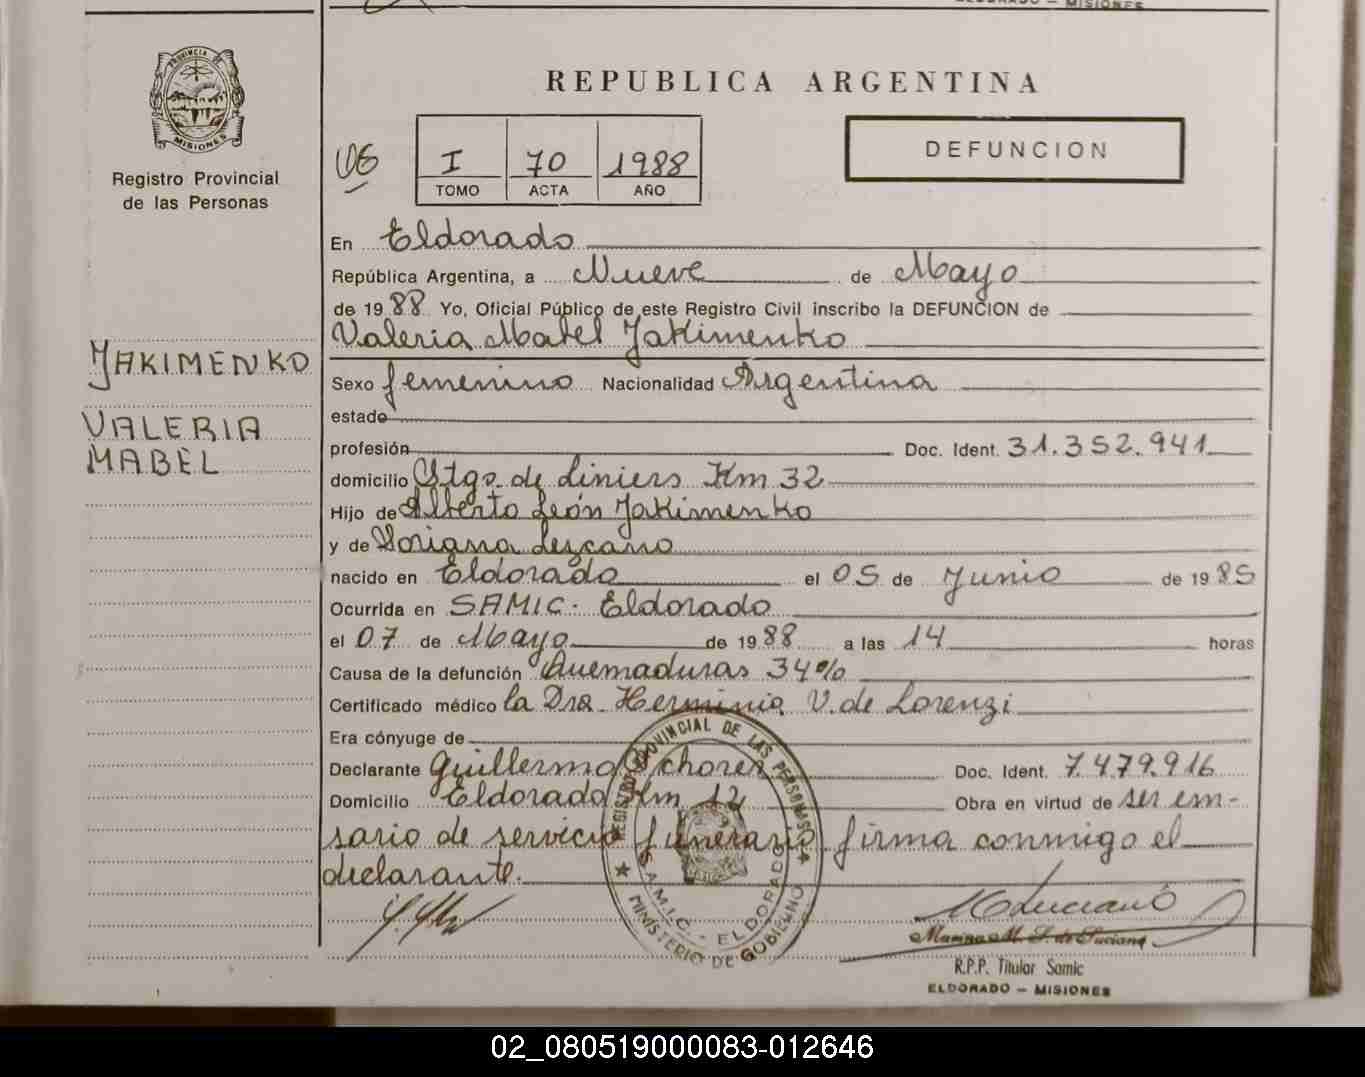 ELDORADO — MISIONES
PROVINCIA DE
MISIONES
Registro Provincial
de las Personas
REPUBLICA ARGENTINA
I 70 1988
TOMO ACTA AÑO
DEFUNCION
En Eldorado
República Argentina, a Nueve de Mayo
de 1988 Yo, Oficial Público de este Registro Civil inscribo la DEFUNCION de
Valeria Mabel Yakimenko
YAKIMENKO
VALERIA
MABEL
Sexo femenino Nacionalidad Argentina
estado
profesión Doc. Ident. 31.352.941
domicilio Stgo. de Liniers Km 32
Hijo de Alberto León Yakimenko
y de Doriana Lezcano
nacido en Eldorado el 05 de Junio de 1985
Ocurrida en SAMIC. Eldorado
el 07 de Mayo de 1988 a las 14 horas
Causa de la defunción Quemaduras 34%
Certificado médico la Dra. Herminia V. de Lorenzi
Era cónyuge de
Declarante Guillermo Doc. Ident. 7.479.916
Domicilio Eldorado Km 12 Obra en virtud de ser em-
sario de servicio funerario firma conmigo el
declarante.
REGISTRO PROVINCIAL DE LAS PERSONAS
S.A.M.I.C. - ELDORADO
MINISTERIO DE GOBIERNO
R.P.P. Titular Samic
ELDORADO — MISIONES
02_080519000083-012646